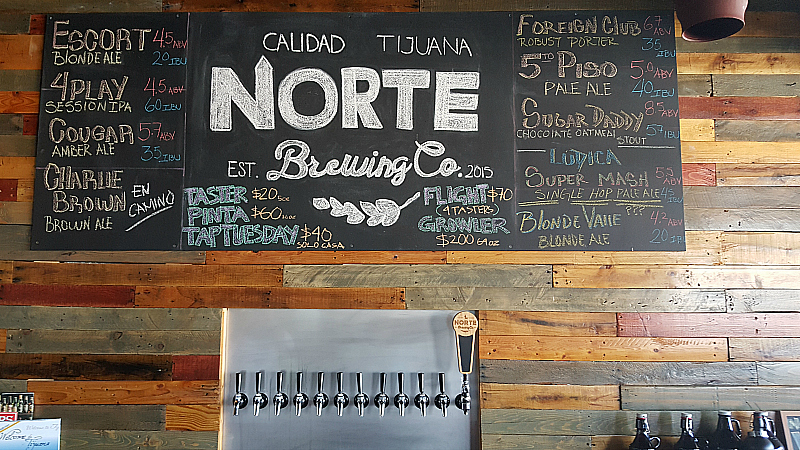 ESCORT 4.5 ABV
BLONDE ALE 20 IBU
4PLAY 4.5 ABV
SESSION IPA 60 IBU
COUGAR 5.7 ABV
AMBER ALE 35 IBU
CHARLIE
BROWN
BROWN ALE
EN
CAMINO
CALIDAD TIJUANA
NORTE
EST. Brewing Co. 2015
TASTER $20 5oz
PINTA $60 16oz
TAP TUESDAY $40
SOLO CASA
FLIGHT $70
(4 TASTERS)
GROWLER
$200 64oz
FOREIGN CLUB 6.7 ABV
ROBUST PORTER 35 IBU
5TO PISO 5.0 ABV
PALE ALE 40 IBU
SUGAR DADDY 8.5 ABV
CHOCOLATE OATMEAL STOUT 57 IBU
LUDICA
SUPER MASH 5.2 ABV
SINGLE HOP PALE ALE
???
BLONDE VALLE 4.2 ABV
BLONDE ALE 20 IBU
NORTE
Brewing Co.